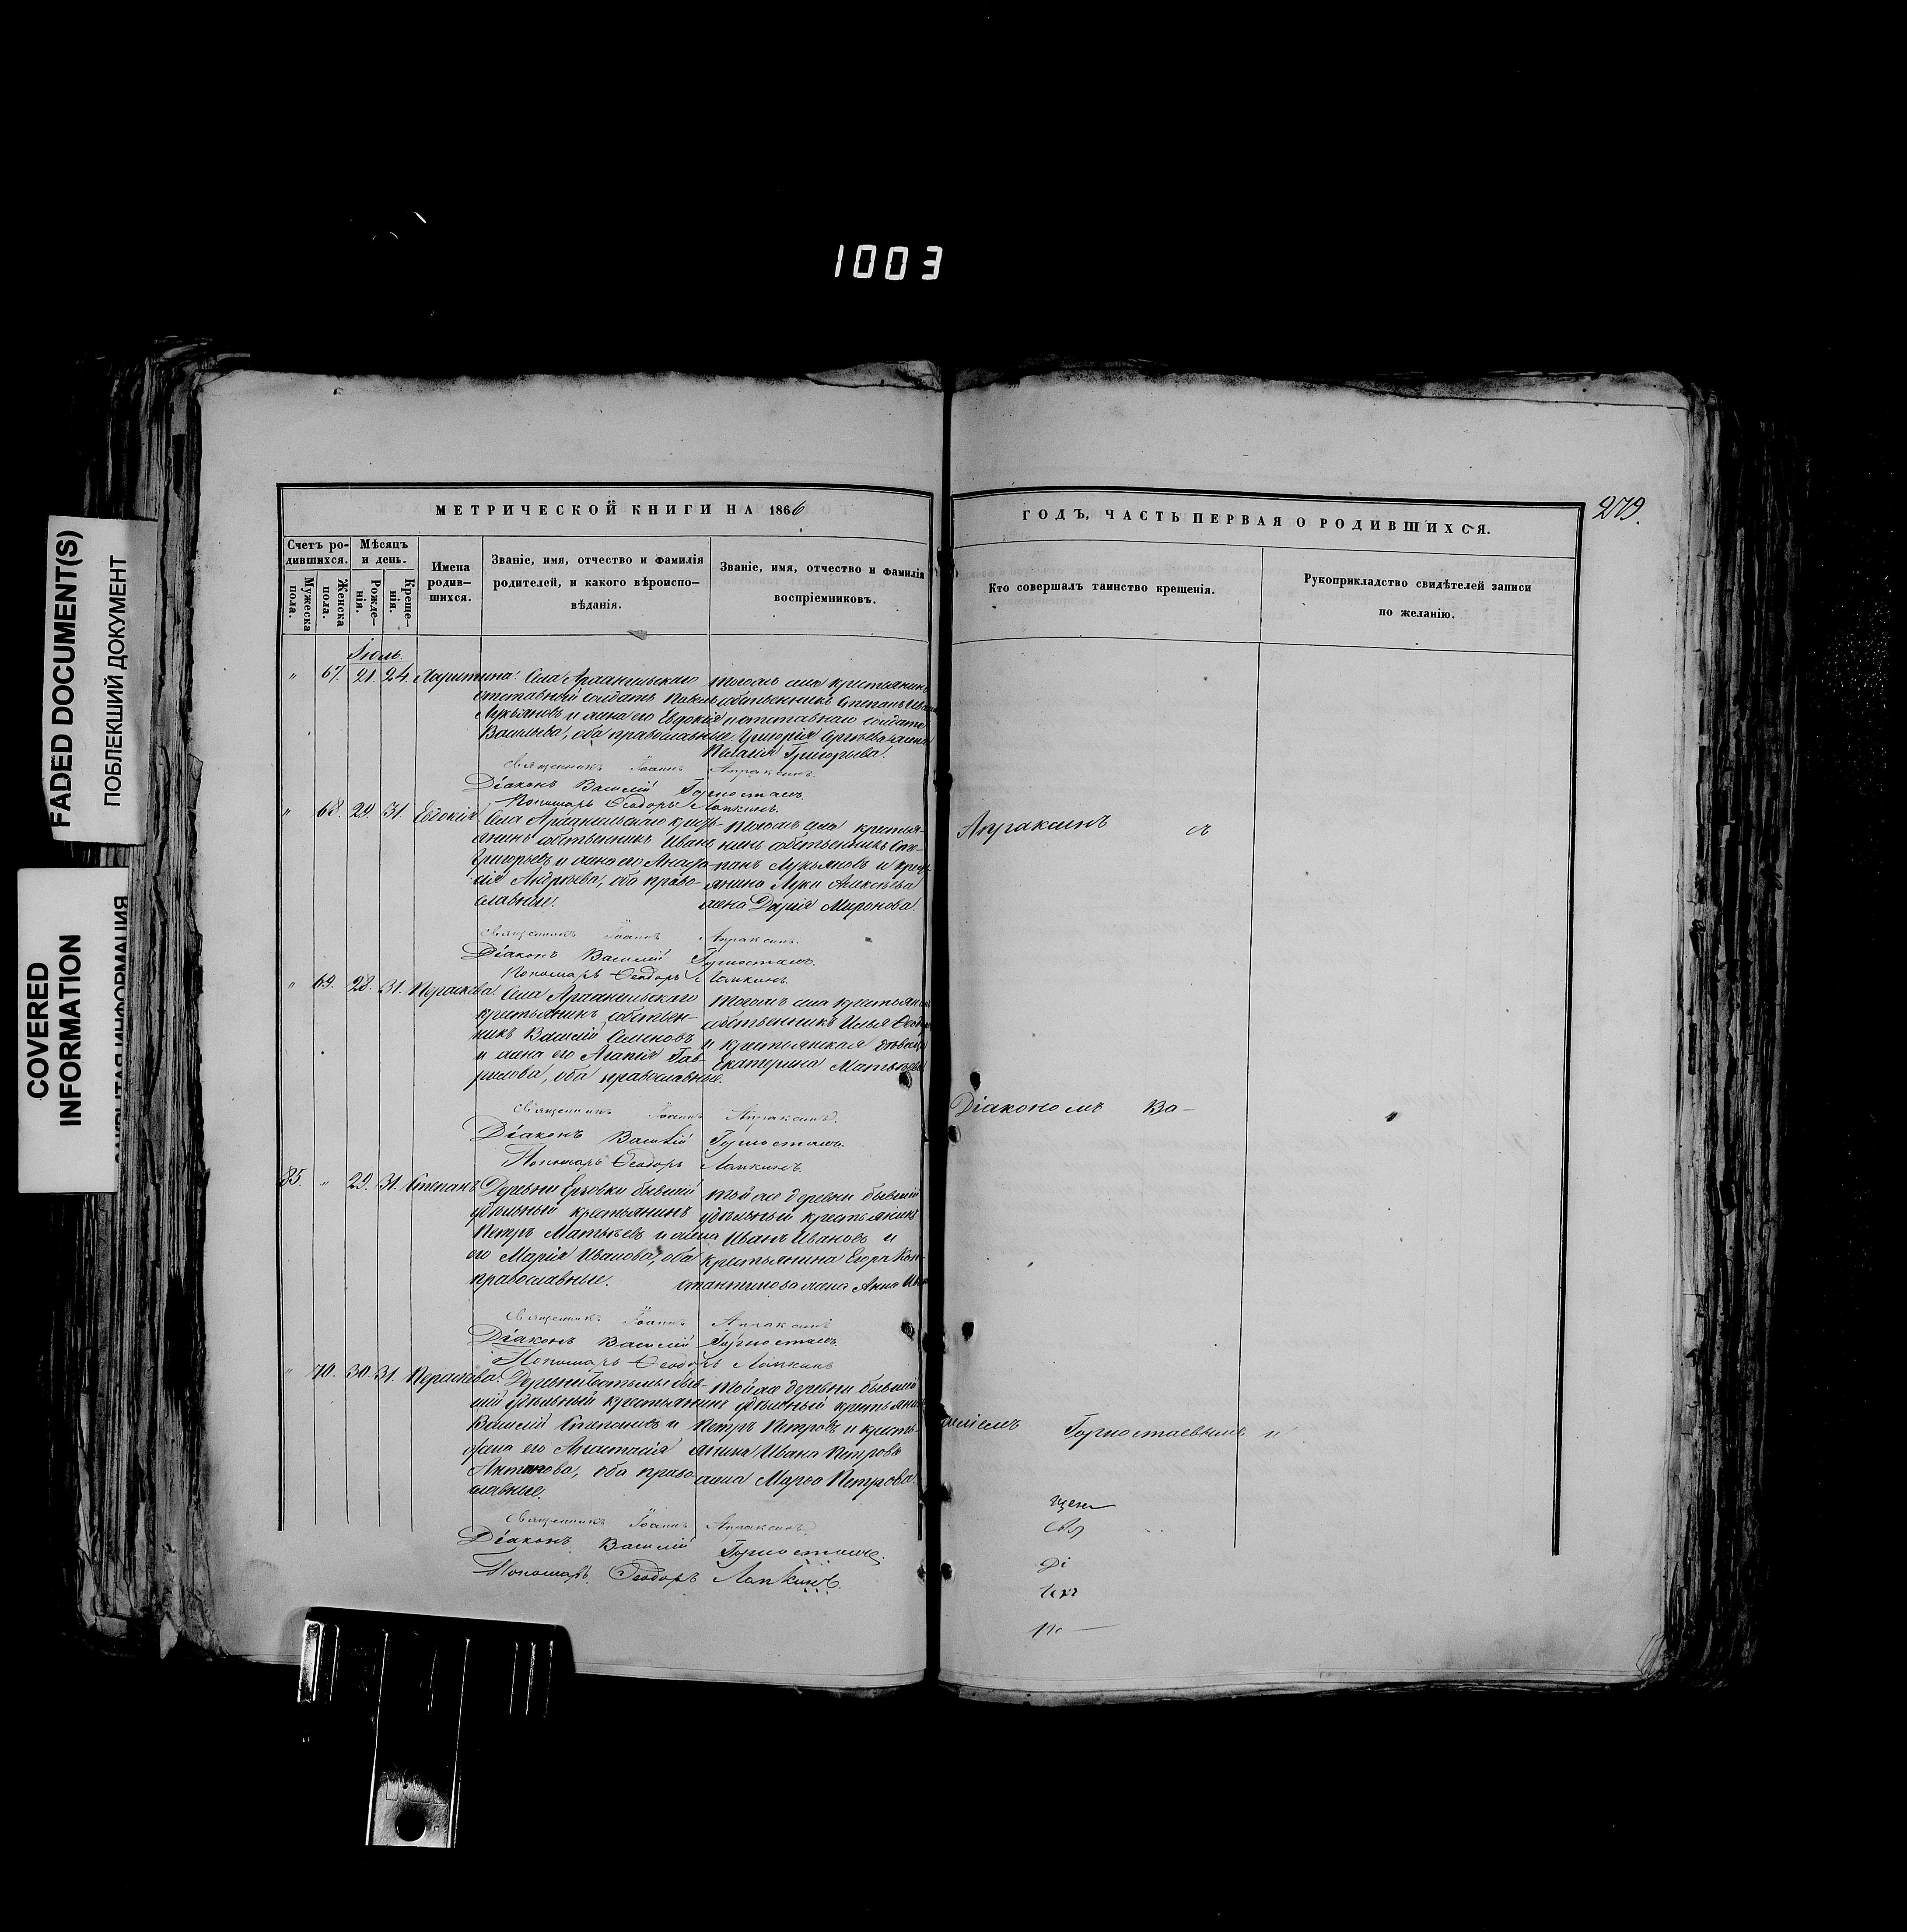 1003
FADED DOCUMENT(S)
ПОБЛЕКШИЙ ДОКУМЕНТ
COVERED
INFORMATION
МЕТРИЧЕСКОЙ КНИГИ НА 1866
ГОДЪ, ЧАСТЬ ПЕРВАЯ О РОДИВШИХСЯ.
279.
Счетъ ро-
дившихся.
Мужеска
пола.
Женска
пола.
Мѣсяцъ
и день.
Рожде-
нія.
Креще-
нія.
Имена
родив-
шихся.
Званіе, имя, отчество и фамилія
родителей, и какого вѣроиспо-
вѣданія.
Званіе, имя, отчество и фамилія
воспріемниковъ.
Кто совершалъ таинство крещенія.
Рукоприкладство свидѣтелей записи
по желанію.
Іюль.
" 67. 21. 24. Харитина
Села Архангельскаго
отставный солдатъ Павелъ
Лукьяновъ и жена его Евдокія
Васильева, оба православные.
тогожъ села крестьянинъ
собственникъ Степанъ
и отставнаго солдата
Григорія Сергѣева жена
Пелагія Григорьева.
Священникъ Іоаннъ Апраксинъ.
Діаконъ Василій Горностаевъ.
Пономарь Ѳеодоръ Лапкинъ.
" 68. 29. 31. Евдокія
Села Архангельскаго крест-
янинъ собственникъ Иванъ
Григорьевъ и жена его
Андреева, оба право-
славные.
тогожъ села крестья-
нинъ собственникъ Сте-
панъ Лукьяновъ и крест-
янина Луки Алексѣева
жена Дарія Миронова.
Священникъ Іоаннъ Апраксинъ.
Діаконъ Василій Горностаевъ.
Пономарь Ѳеодоръ Лапкинъ.
" 69. 28. 31. Параскева
Села Архангельскаго
крестьянинъ собствен-
никъ Василій Семеновъ
и жена его Агапія Гав-
рилова, оба православные.
тогожъ села крестьянинъ
собственникъ Илья
и крестьянская дѣвица
Екатерина Матвѣева
Священникъ Іоаннъ Апраксинъ.
Діаконъ Василій Горностаевъ.
Пономарь Ѳеодоръ Лапкинъ.
85. " 29. 31. Степанъ
Деревни Ерзовки бывшій
удѣльный крестьянинъ
Петръ Матвѣевъ и жена
его Марія Иванова, оба
православные.
той же деревни бывшій
удѣльный крестьянинъ
Иванъ Ивановъ и
крестьянина Егора Кон-
стантинова жена Анна
Священникъ Іоаннъ Апраксинъ
Діаконъ Василій Горностаевъ.
Пономарь Ѳеодоръ Лапкинъ
" 70. 30. 31. Параскева.
Деревни быв-
шій удѣльный крестьянинъ
Василій Степановъ и
жена его Анастасія
оба право-
славные.
той же деревни бывшій
удѣльный крестьянинъ
Петръ Петровъ и кресть-
янина Ивана Петрова
жена Марѳа Петрова.
Священникъ Іоаннъ Апраксинъ.
Діаконъ Василій Горностаевъ.
Пономарь Ѳеодоръ Лапкинъ.
Апраксинъ съ
Діакономъ Ва-
силіемъ Горностаевымъ и
щен
Свя
Ді